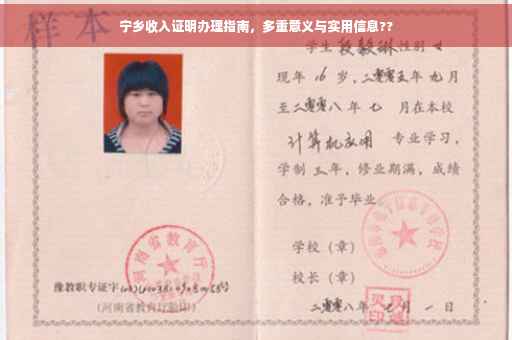 宁乡收入证明办理指南，多重意义与实用信息??
样本
学生 段毅琳 性别 女
现年 16 岁，二零零五年 九月
至二零零八年 七 月在本校
计算机应用 专业学习，
学制 三 年，修业期满，成绩
合格，准予毕业
学校（章）
校长（章）
二零零八年 七 月 一 日
河南省教育厅
豫教职专证字
(河南省教育厅验印)